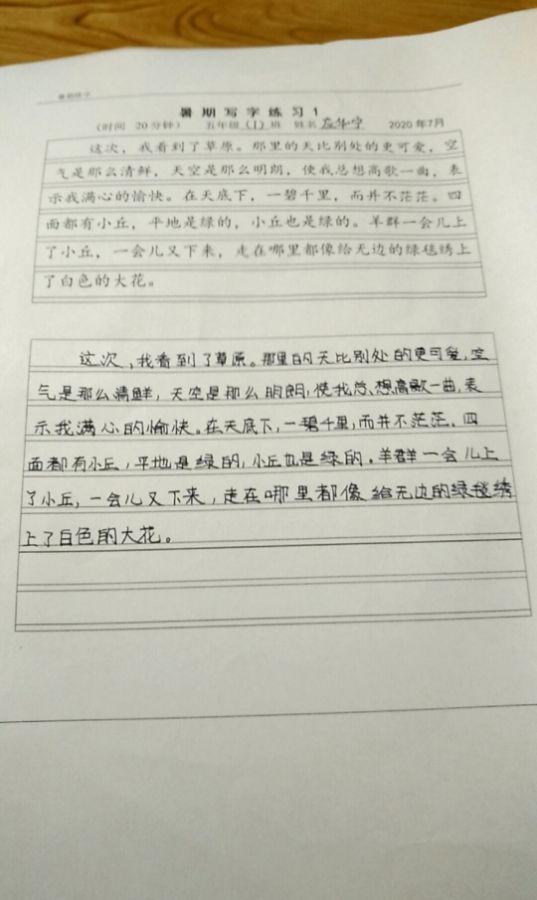 暑期练字
暑期写字练习1
（时间 20分钟） 五年级（1）班 姓名 2020年7月
这次，我看到了草原。那里的天比别处的更可爱，空
气是那么清鲜，天空是那么明朗，使我总想高歌一曲，表
示我满心的愉快。在天底下，一碧千里，而并不茫茫。四
面都有小丘，平地是绿的，小丘也是绿的。羊群一会儿上
了小丘，一会儿又下来，走在哪里都像给无边的绿毯绣上
了白色的大花。
这次，我看到了草原。那里的天比别处的更可爱，空
气是那么清鲜，天空是那么明朗，使我总想高歌一曲，表
示我满心的愉快。在天底下，一碧千里，而并不茫茫。四
面都有小丘，平地是绿的，小丘也是绿的。羊群一会儿上
了小丘，一会儿又下来，走在哪里都像给无边的绿毯绣
上了白色的大花。